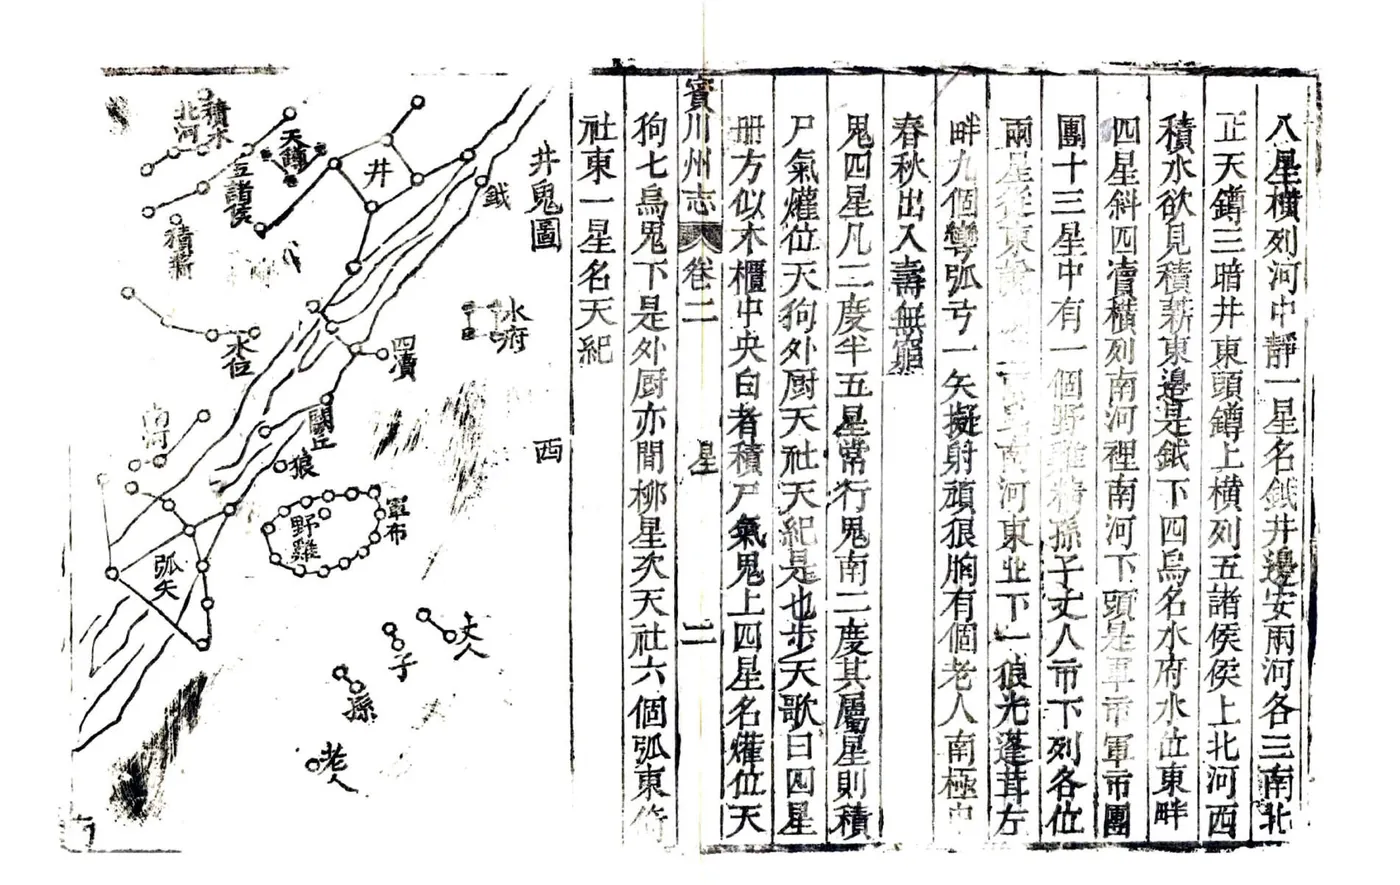 八星橫列河中靜一星名鉞井邊安兩河各三南北
正天鐏三暗井東頭鐏上橫列五諸侯侯上北河西
積水欲見積薪東邊是鉞下四烏名水府水位東畔
四星斜四瀆橫列南河裡南河下頭是軍市軍市團
團十三星中有一個野雞精孫子丈人市下列各位
兩星從東 南河東丘下一狼光蓬茸左
畔九個彎弧弓一矢擬射頑狼胸有個老人南極中
春秋出入壽無窮
鬼四星凡二度半五星常行鬼南二度其屬星則積
尸氣爟位天狗外厨天社天紀是也步天歌曰四星
册方似木櫃中央白者積尸氣鬼上四星名爟位天
賓川州志 卷二 星 二
狗七烏鬼下是外厨亦間柳星次天社六個弧東倚
社東一星名天紀
井鬼圖
西
鉞
井
天鐏
積水
北河
五諸侯
積薪
水府
四瀆
水位
闕丘
南河
狼
軍市
野雞
弧矢
丈人
子
孫
老人